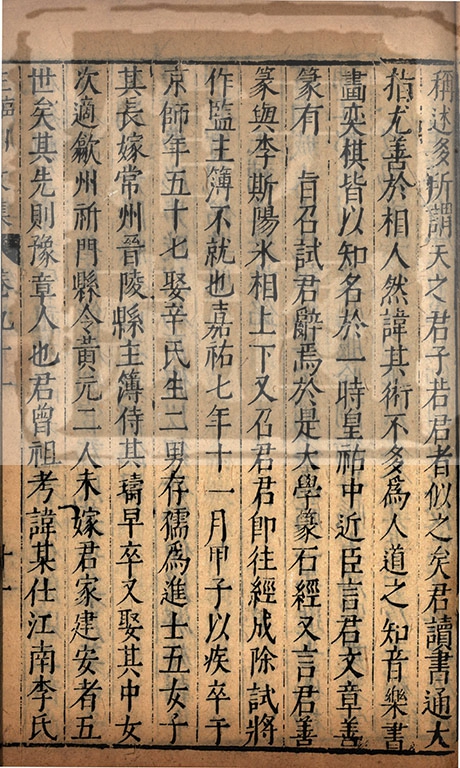 稱述多所謂天之君子若君者似之矣君讀書通大
指尤善於相人然諱其術不多爲人道之知音樂書
畫奕棋皆以知名於一時皇祐中近臣言君文章善
篆有 旨召試君辭焉於是大學篆石經又言君善
篆與李斯陽氷相上下又召君君即往經成除試將
作監主簿不就也嘉祐七年十一月甲子以疾卒于
京師年五十七娶辛氏生二男存孺爲進士五女子
其長嫁常州晉陵縣主簿侍其璹早卒又娶其中女
次適歙州祈門縣令黃元二人未嫁君家建安者五
世矣其先則豫章人也君曾祖考諱某仕江南李氏